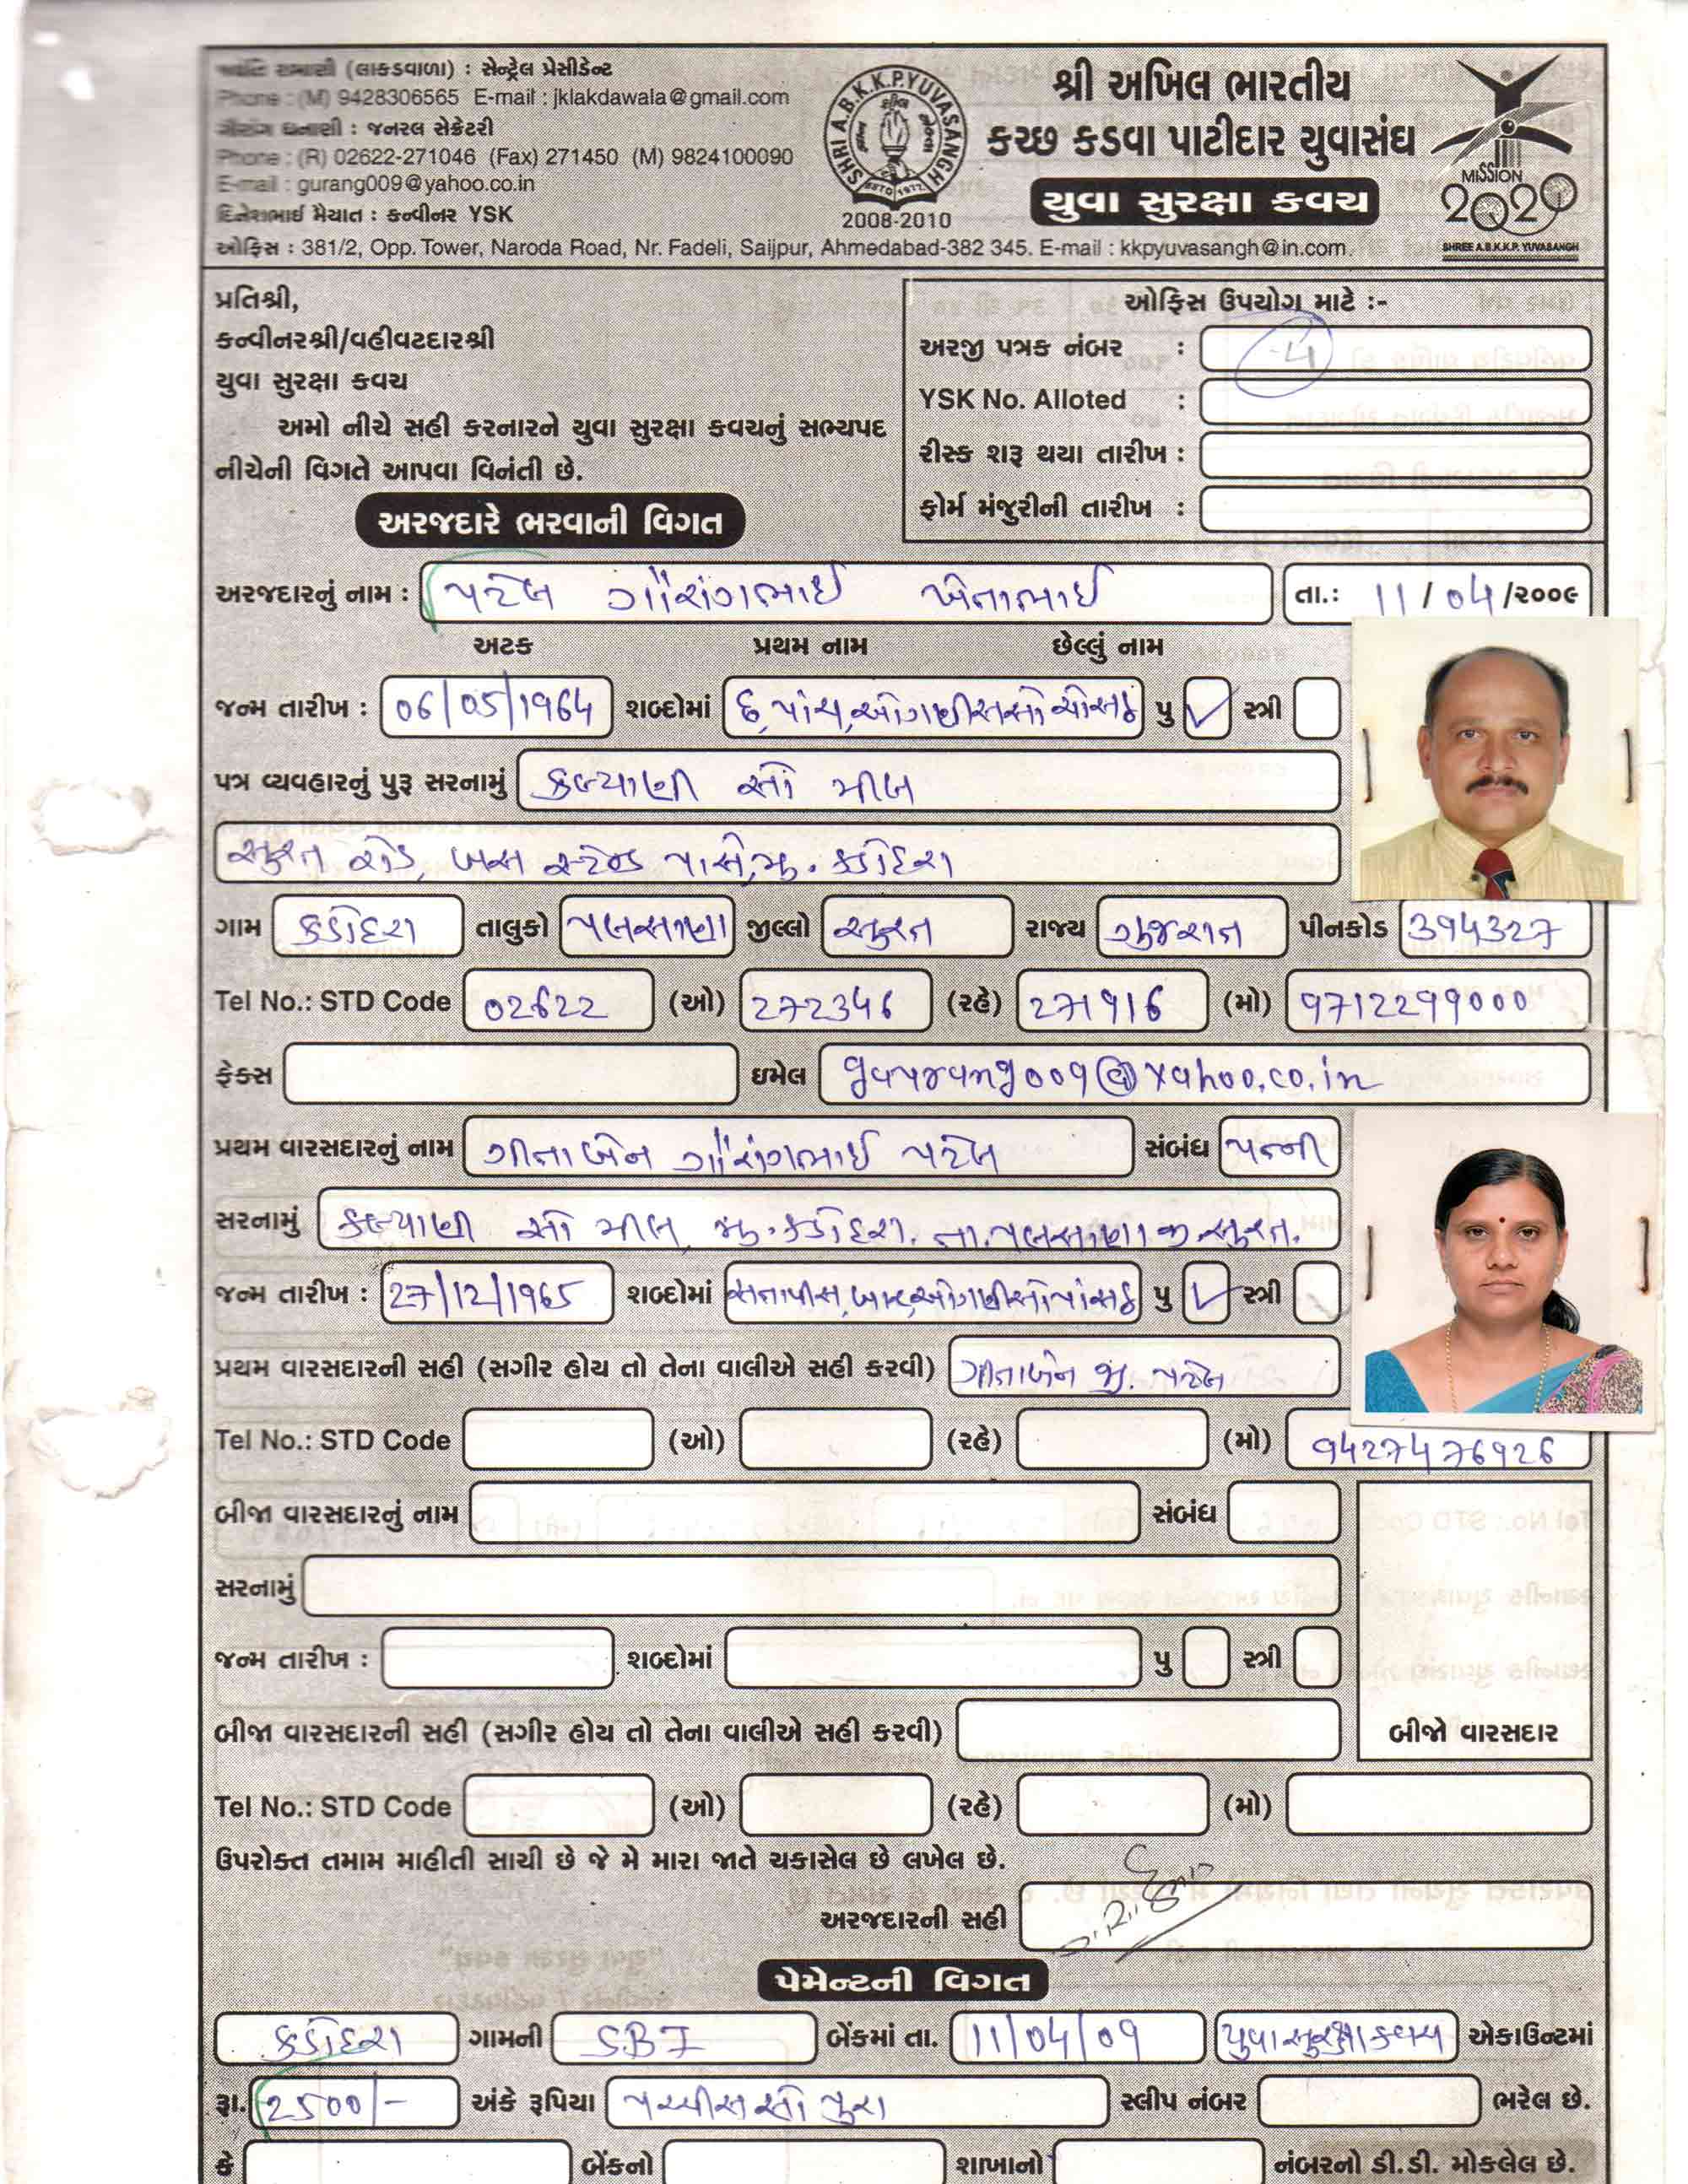 (લાકડાવાળા) : સેન્ટ્રેલ પ્રેસીડેન્ટ
Phone : (M) 9428306565 E-mail : jklakdawala@gmail.com
: જનરલ સેક્રેટરી
Phone : (R) 02622-271046 (Fax) 271450 (M) 9824100090
E-mail : gurang009@yahoo.co.in
દિનેશભાઈ મૈયાત : કન્વીનર YSK
SHRI A.B.K.K.P. YUVASANGH
ESTD 1972
2008-2010
શ્રી અખિલ ભારતીય
કચ્છ કડવા પાટીદાર યુવાસંઘ
યુવા સુરક્ષા કવચ
MISSION
2020
SHREE A.B.K.K.P. YUVASANGH
ઓફિસ : 381/2, Opp. Tower, Naroda Road, Nr. Fadeli, Saijpur, Ahmedabad-382 345. E-mail : kkpyuvasangh@in.com.
પ્રતિશ્રી,
કન્વીનરશ્રી/વહીવટદારશ્રી
યુવા સુરક્ષા કવચ
અમો નીચે સહી કરનારને યુવા સુરક્ષા કવચનું સભ્યપદ
નીચેની વિગતે આપવા વિનંતી છે.
ઓફિસ ઉપયોગ માટે :-
અરજી પત્રક નંબર :
YSK No. Alloted :
રીસ્ક શરૂ થયા તારીખ :
ફોર્મ મંજુરીની તારીખ :
અરજદારે ભરવાની વિગત
અરજદારનું નામ : પટેલ ગૌરાંગભાઈ ખેતાભાઈ તા.: 11/04/૨૦૦૯
અટક પ્રથમ નામ છેલ્લું નામ
જન્મ તારીખ : 06/05/1964 શબ્દોમાં છ,પાંચ,ઓગણીસસો ચોસઠ પુ ✓ સ્ત્રી
પત્ર વ્યવહારનું પુરૂ સરનામું કલ્યાણી સો મીલ
સુરત રોડ, બસ સ્ટેન્ડ પાસે,મુ. કડોદરા
ગામ કડોદરા તાલુકો પલસાણા જીલ્લો સુરત રાજ્ય ગુજરાત પીનકોડ 394327
Tel No.: STD Code 02622 (ઓ) 272346 (રહે) 271916 (મો) 9712299000
ફેક્સ ઇમેલ gaurang009@yahoo.co.in
પ્રથમ વારસદારનું નામ ગીતાબેન ગૌરાંગભાઈ પટેલ સંબંધ પત્ની
સરનામું કલ્યાણી સો મીલ, મુ.કડોદરા. તા.પલસાણા જી.સુરત.
જન્મ તારીખ : 27/12/1965 શબ્દોમાં સતાવીસ,બાર,ઓગણીસોપાંસઠ પુ ✓ સ્ત્રી ✓
પ્રથમ વારસદારની સહી (સગીર હોય તો તેના વાલીએ સહી કરવી) ગીતાબેન જી. પટેલ
Tel No.: STD Code (ઓ) (રહે) (મો) 9427476926
બીજા વારસદારનું નામ સંબંધ
સરનામું
જન્મ તારીખ : શબ્દોમાં પુ સ્ત્રી
બીજા વારસદારની સહી (સગીર હોય તો તેના વાલીએ સહી કરવી)
બીજો વારસદાર
Tel No.: STD Code (ઓ) (રહે) (મો)
ઉપરોક્ત તમામ માહીતી સાચી છે જે મે મારા જાતે ચકાસેલ છે લખેલ છે.
અરજદારની સહી
પેમેન્ટની વિગત
કડોદરા ગામની SBI બેંકમાં તા. 11/04/09 યુવા સુરક્ષા કવચ એકાઉન્ટમાં
રૂા. 2500/- અંકે રૂપિયા પચ્ચીસ સો પુરા સ્લીપ નંબર ભરેલ છે.
કે બેંકનો શાખાનો નંબરનો ડી.ડી. મોકલેલ છે.